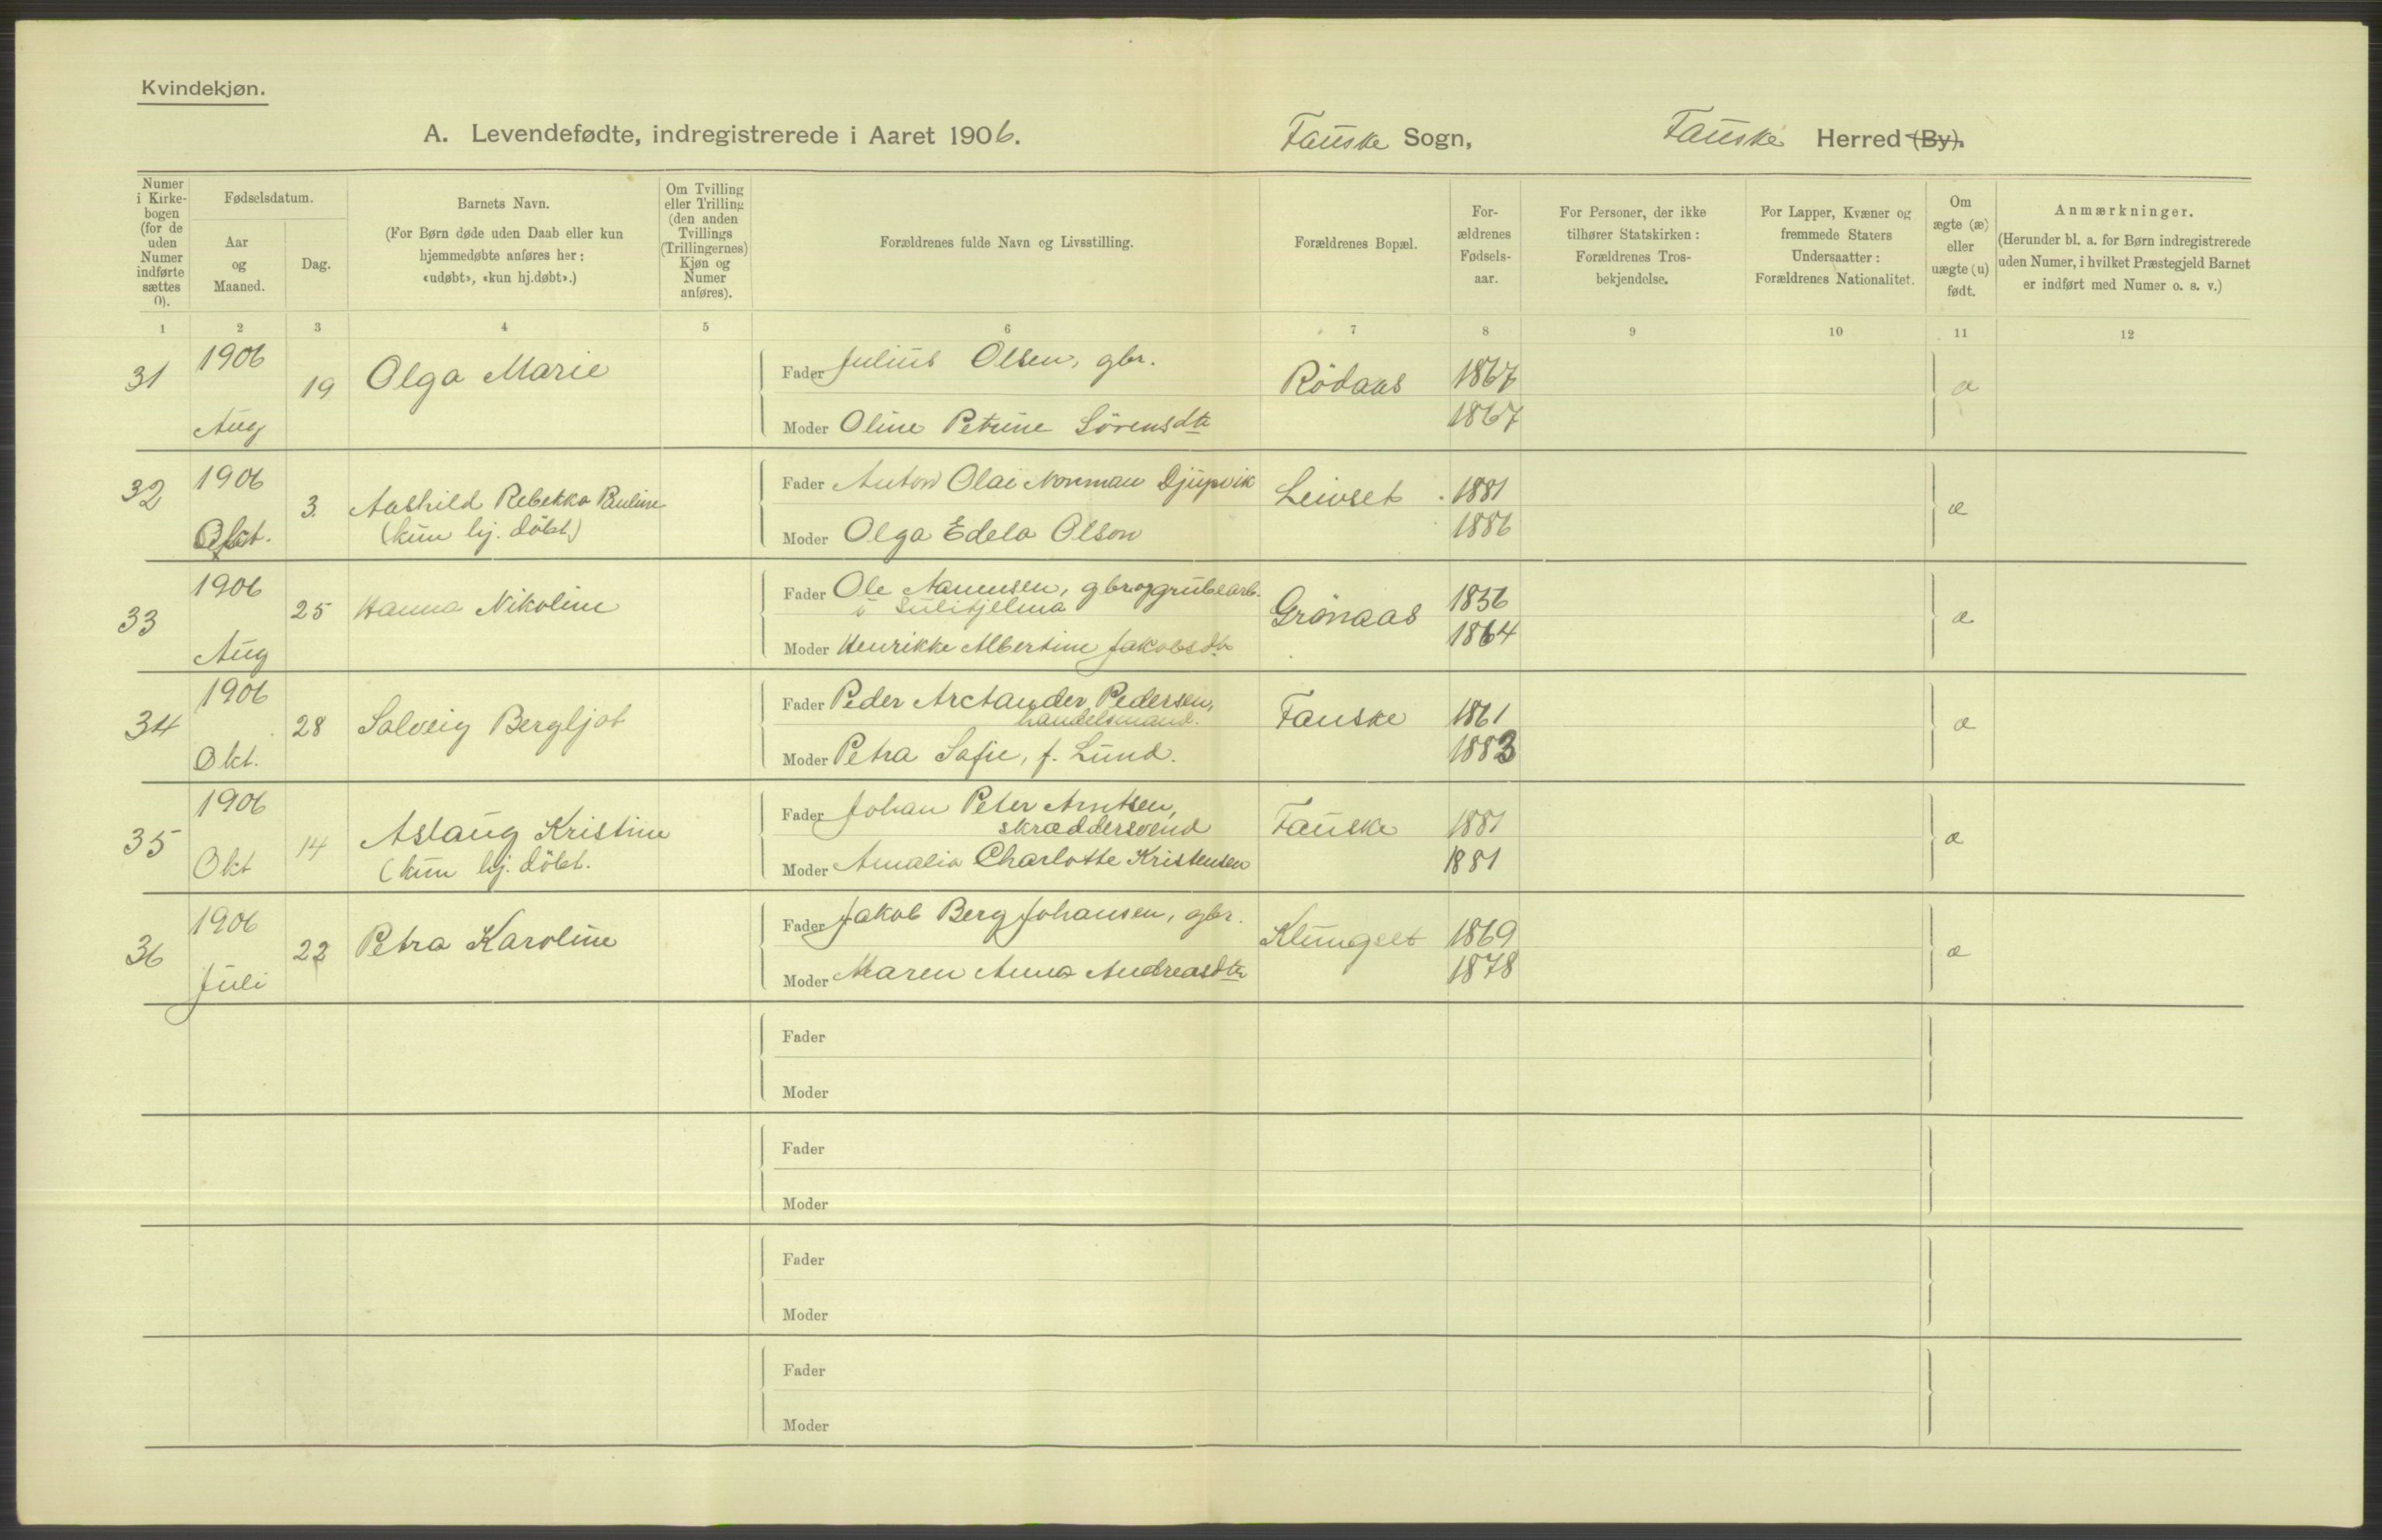 Kvindekjøn.
A. Levendefødte, indregistrerede i Aaret 1906.
Fauske Sogn,
Fauske Herred (By).
Numer i Kirke-bogen (for de uden Numer indførte sættes 0).
Fødselsdatum.
Aar og Maaned.
Dag.
Barnets Navn.
(For Børn døde uden Daab eller kun hjemmedøbte anføres her: «udøbt», «kun hj.døbt».)
Om Tvilling eller Trilling (den anden Tvillings (Trillingernes) Kjøn og Numer anføres).
Forældrenes fulde Navn og Livsstilling.
Forældrenes Bopæl.
For-ældrenes Fødsels-aar.
For Personer, der ikke tilhører Statskirken: Forældrenes Tros-bekjendelse.
For Lapper, Kvæner og fremmede Staters Undersaatter: Forældrenes Nationalitet.
Om ægte (æ) eller uægte (u) født.
Anmærkninger.
(Herunder bl. a. for Børn indregistrerede uden Numer, i hvilket Præstegjeld Barnet er indført med Numer o. s. v.)
1 2 3 4 5 6 7 8 9 10 11 12
31 1906 Aug 19 Olga Marie
Fader Julius Olsen, gbr. Rödaas 1867 æ
Moder Oline Petrine Sörensdtr 1867
32 1906 Okt. 3. Aashild Rebekka Pauline
(kun hj. döbt)
Fader Anton Olai Norman Djupvik Leivset 1881 æ
Moder Olga Edela Olson 1886
33 1906 Aug 25 Hanna Nikoline
Fader Ole Hanssen, gbr og grubearb.
i Sulitjelma Grönaas 1856 æ
Moder Henrikke Albertine Jakobsdtr 1864
34 1906 Okt. 28 Solveig Bergljot
Fader Peder Arctander Pedersen,
handelsmand. Fauske 1861 æ
Moder Petra Sofie, f. Lund. 1883
35 1906 Okt 14 Aslaug Kristine
(kun hj. döbt.
Fader Johan Peter Arntsen,
skræddersvend Fauske 1881 æ
Moder Amalia Charlotte Kristensen 1881
36 1906 Juli 22 Petra Karoline
Fader Jakob Berg Johansen, gbr. Klungset 1869 æ
Moder Maren Anna Andreasdtr 1878
Fader
Moder
Fader
Moder
Fader
Moder
Fader
Moder